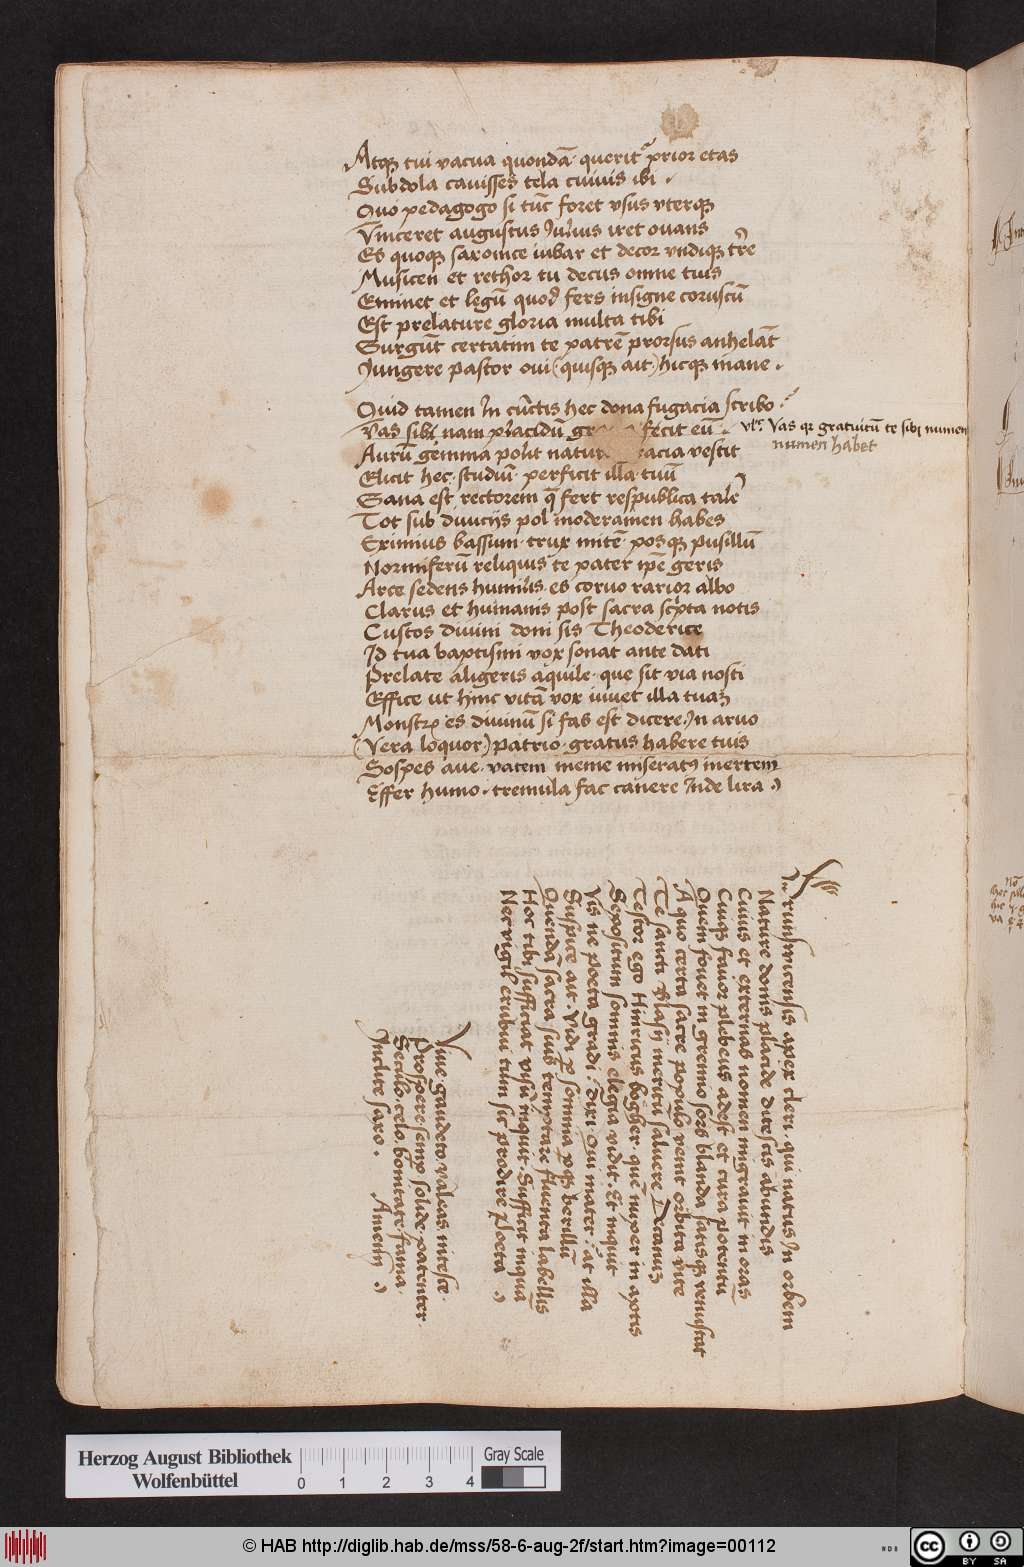 Atqꝫ tui vacua quondā querit᷑ prior etas
Subdola cauisses tela cuiuis ibi
Quo pedagogo si tūc foret vsus vterqꝫ
Vinceret augustus Iulius iret ouans
Es quoqꝫ saxonice iubar et decor vndiqꝫ tr̄e
Musicen et rethor tu decus omne tuis
Eminet et legū quod fers insigne coruscū
Est prelature gloria multa tibi
Surgūt certatim te patrē prorsus anhelāt
Iungere pastor oui (quisqꝫ ait) hicqꝫ inane
Quid tamen In cūctis hec dona fugacia scribo
Vas sibi nam placidū fecit eū
vlr̄ Vas qɜ gratuitū te sibi numen
numen habet
Aurū gemma polit natur acia vestit
Elicit hec studiū perficit illa tuū
Sana est rectorem q̄ fert respublica talē
Tot sub diuicijs pol moderamen habes
Eximius bassum trux mitē posqꝫ pusillū
Normiferū reliquis te pater ip̄e geris
Arce sedens humilis es coruo rarior albo
Clarus et humanis post sacra sc̄pta notis
Custos diuini doni sis Theoderice
Id tua baptismi vox sonat ante dati
Prelate aligeris aquile que sit via nosti
Effice ut hinc vitā vox iuuet illa tuaꝫ
Monstrꝫ es diuinū si fas est dicere In aruo
(Vera loquor) patrio gratus habere tuis
Sospes aue vatem meme miserat⁹ inertem
Effer humo tremula fac canere Inde lira
Brunswicensis apex cleri qui natus In orbem
Nature donis placide ditescis abundis
Cuius et externas nomen migrauit in oras
Cuiqꝫ fauor plebeus adest et cura potentū
Quem fouet in gremio sors blanda satisqꝫ venustat
A quo certa sacre populo venit orbita vite
Te sancti Blasij meritū saluere Decanuꝫ
Testor ego Hinricus bogher quē nuper in aptis
Sepositum somnis elegia vidit Et inquit
Vis ne poeta gradi dixi Qui mater at illa
Suspice ait Vidi ꝑ somnia pqꝫ berillū
Quendā sacra suis temptare fluenta labellis
Hoc tibi sufficiat visū inquit Sufficit inquā
Nec vigil erubui tum sic prodire Poeta
Viue gaudeto valeas nitesce
Prospere semp solide patenter
Seculo celo bonitate fama
Inclite saxo Amen
Herzog August Bibliothek
Wolfenbüttel
0 1 2 3 4
Gray Scale
© HAB http://diglib.hab.de/mss/58-6-aug-2f/start.htm?image=00112
cc BY SA